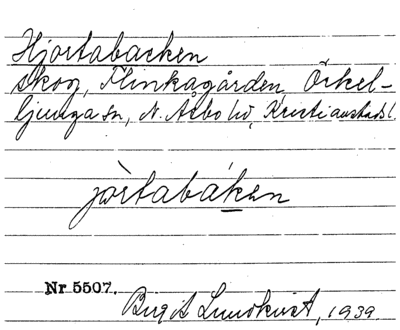 Hjortabacken
skog, Flinkagården, Örkel-
ljunga sn, N. Åsbo hd, Kristianstads l.
jòrtabáken
Nr 5507.
Birgit Lundkvist, 1939.